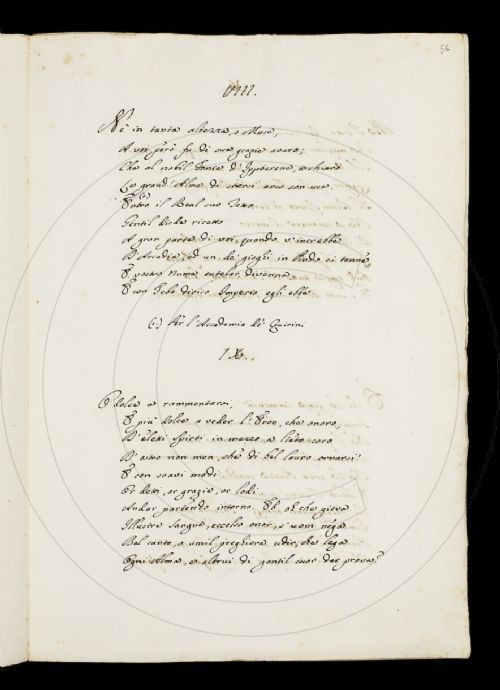 56
VIII.
Nè in tanta altezza, o Muse,
A voi però fu di sue grazie avaro;
Che al nobil Fonte d'Ippocrene, e chiaro
Le grand'Alme di starsi anco son use.
Entro il Real suo Tetto (1)
Gentil diede ricetto
A gran parte di voi, quando v'increbbe
D'Arcadia, ed un de' gioghi in Pindo ei tenne,
E vostro Nume tutelar divenne
E con Febo diviso Imperio egli ebbe
(1) Per l'Accademia de' Quirini
IX.
O dolce a rammentarsi,
E più dolce a veder l'Eroe, che onora,
D'eletti spirti in mezzo a lieto coro
D'ostro non men, che di bel lauro ornarsi!
E con soavi modi
Or detti, or grazie, or lodi
Andar partendo intorno. Eh eh che giova
Illustre sangue, eccelso onor, s'uom nega
Bel canto, o umil preghiera udir, che lega
Ogni Alma, e altrui di gentil cuor dar prova?